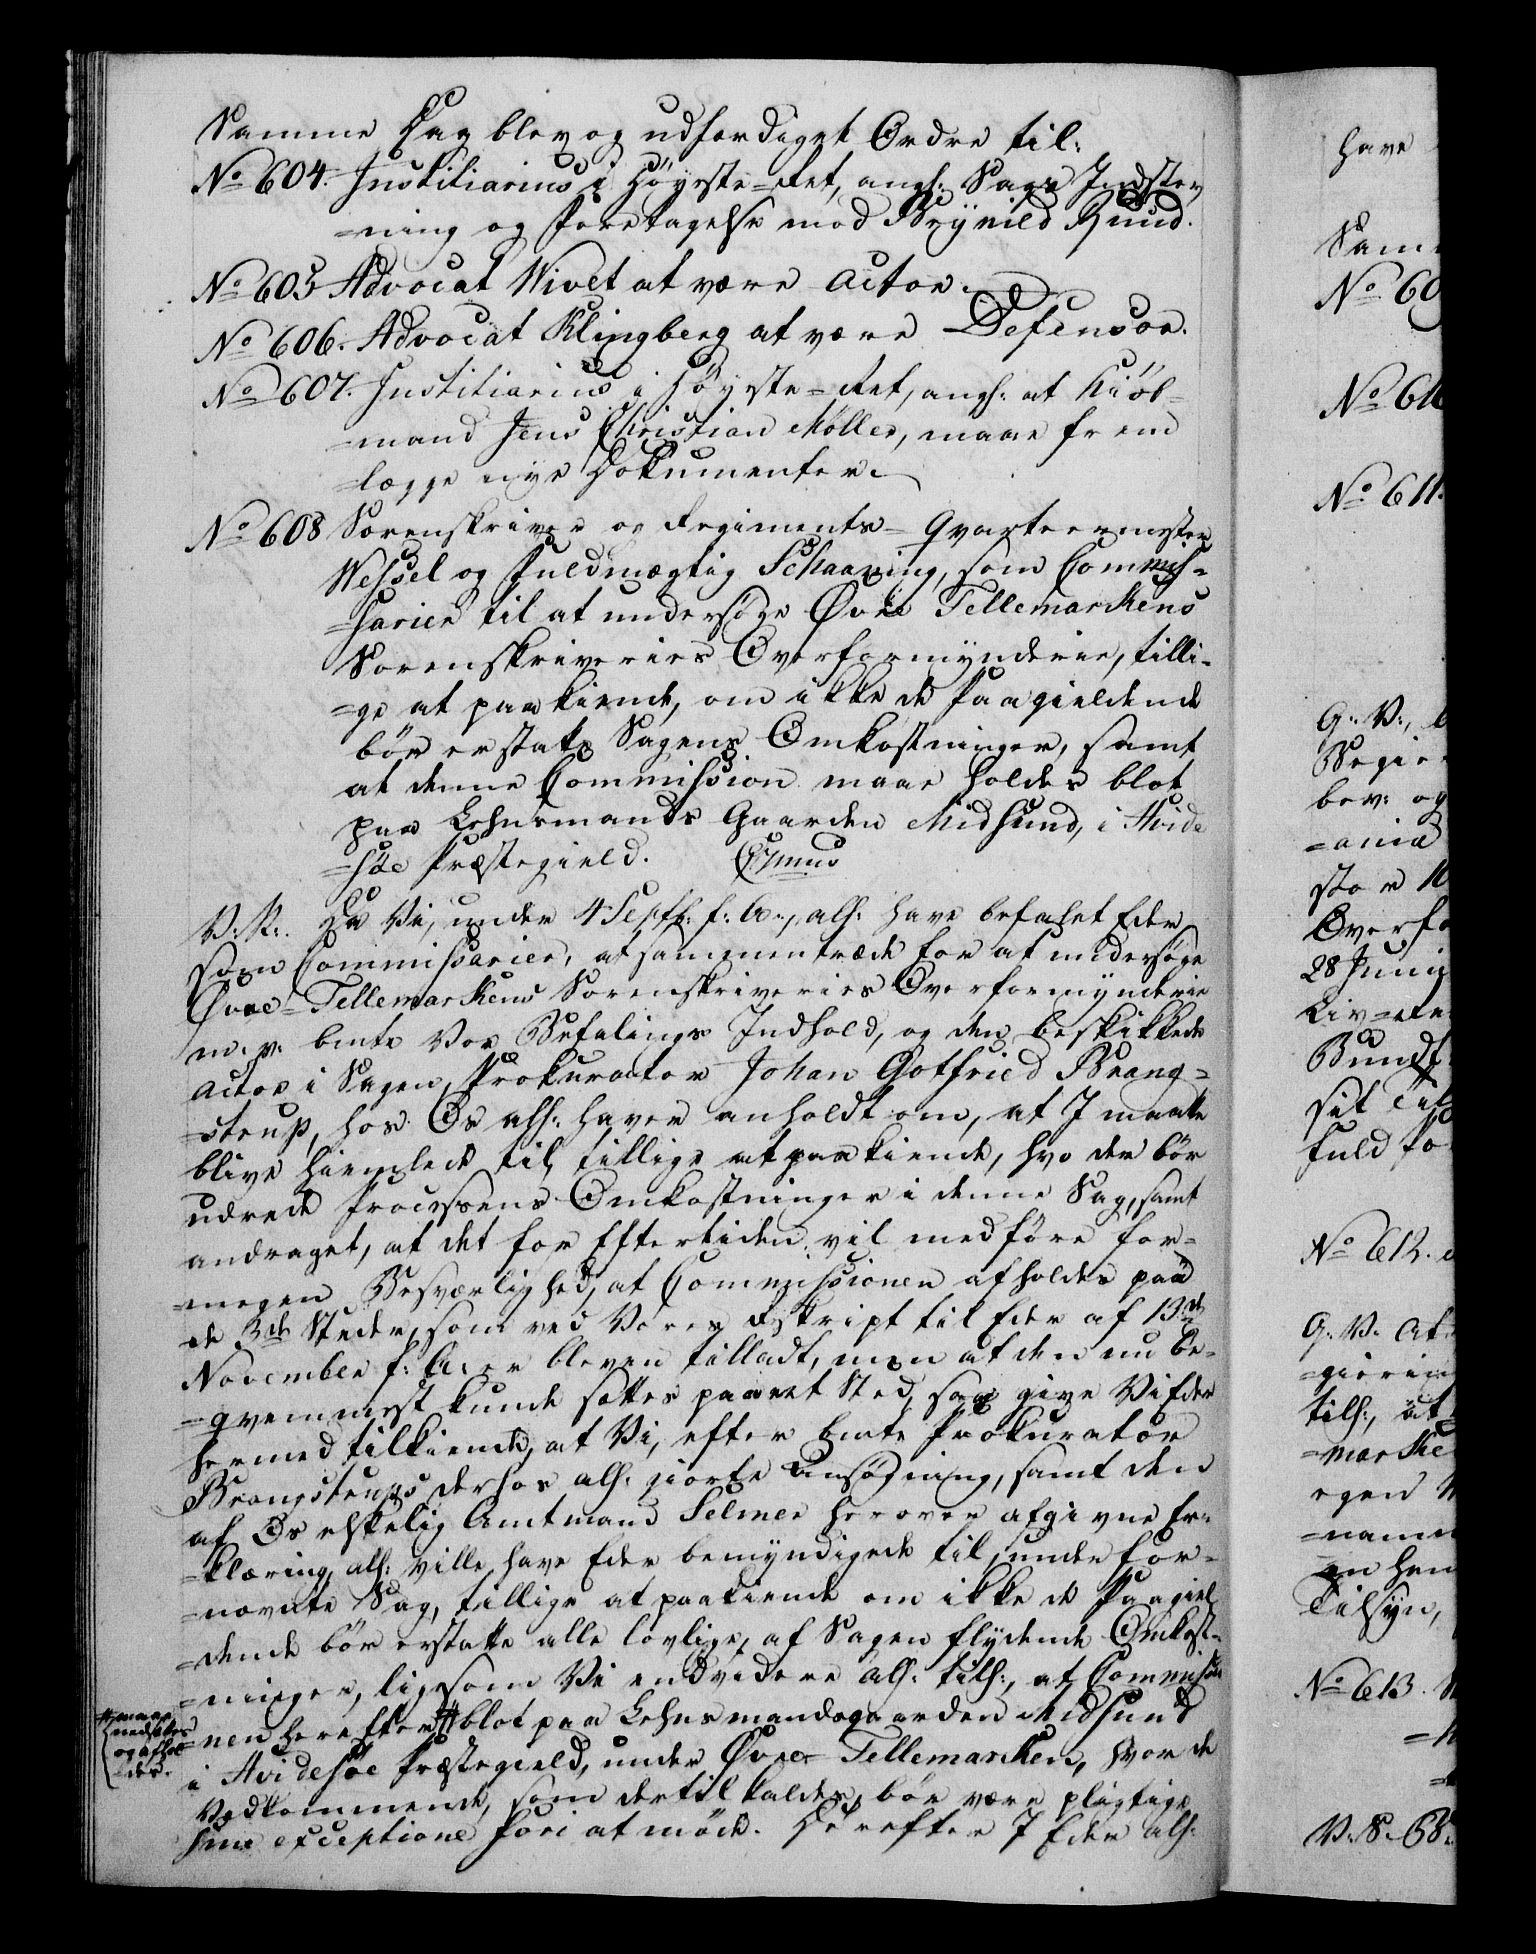 Samme Dag blev og udfærdiget Ordre til:
No 604. Justitiarius i Høyeste-Ret, angl: Sags Indstev
=ning og Foretagelse mod Brynild Ruud.
No 605 Advocat Wivet at være Actor.
No 606. Advocat Klingberg at være Defensor.
No 607. Justitiarius i Høyeste-Ret, angl: at Kiøb=
=mand Jens Christian Møller, maae frem
=lægge nye Dokumenter.
No 608 Sorenskriver og Regiments-Qvarteermester
Wessel og Fuldmægtig Schaaning, som Commis=
=sarier til at undersøge Øvre Tellemarkens
Sorenskriveries Overformynderie, tilli=
=ge at paakiende, om ikke de Paagieldende
bør erstatte Sagens Omkostninger, samt
at denne Commission maae holdes blot
paa Lehnsmands Gaarden Midsund, i Hvide
=søe Præstegield.
V: R:. Da Vi, under 4 Septb: f: A:, als: have befalet Eder
som Commissarier, at sammentræde for at undersøge
Øvre-Tellemarkens Sorenskriveries Overformynderie
m. v. bmte Vor Befalings Indhold, og den beskikkede
Actor i Sagen, Prokurator Johan Gotfried Brang=
=strup, hos Os als: haver anholdt om, at I maatte
blive hiemlede til tillige at paakiende, hvo der bør
udrede Processens Omkostninger i denne Sag, samt
andraget, at det for Eftertiden vil medføre for=
=megen Besværlighed, at Commissionen afholdes paa
de 3de Steder, som ved Vores Reskript til Eder af 13de
November f: A: er bleven tilladt, men at den nu be=
=qvemmest kunde sættes paa eet Sted, saa give Vi Eder
hermed tilkiende, at Vi, efter bmte Prokurator
Brangstrups derhos als: giorte Ansøgning, samt den
af Os elskelig Amtmand Selmer herover afgivne Er=
=klæring, als: ville have Eder bemyndigede til, under for=
=nævnte Sag, tillige at paakiende om ikke de Paagiel
=dende bør erstatte alle lovlige, af Sagen flydende Omkost=
=ninger, ligesom Vi endvidere als: tils:, at Commissio
=nen herefter # blot paa Lehnsmandsgaarden Midsund
# maae
nedsættes
og afhol
=des.
i Hvidesøe Præstegield, under Øvre-Tellemarken, hvor de
Vedkommende, som dertil kaldes, bør være pligtige
sine exceptione fori at møde. Derefter I Eder als:
have
Sam
No 60
No 61
No 611.
G: V:,
Regie
bev: og
=ania
stor
Overfo
28 Junii
Liv=
Bundt
sit Til
fuld
No 612.
G: V: At
=giering
tils:, at
=marke
egen
=nævn
en hen
Tilsyn,
No 613.
V: S: